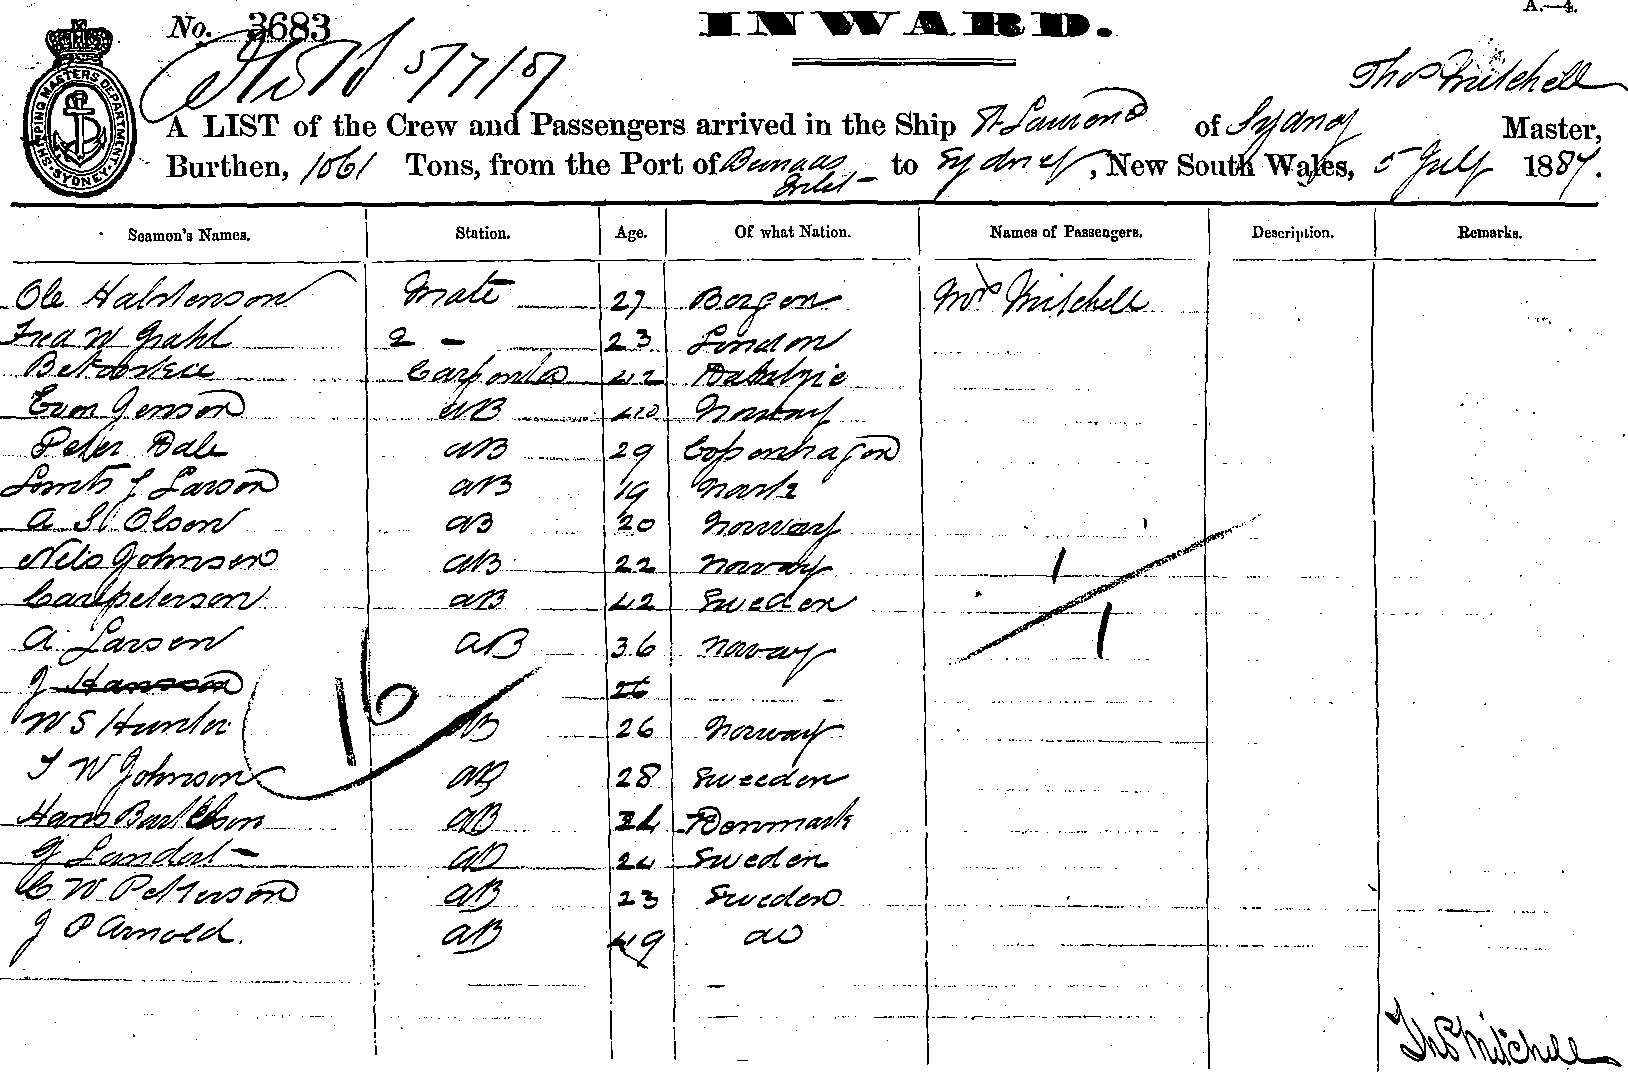 A.—4.
No. 3683 INWARD.
5/7/87
Thos Mitchell
SHIPPING MASTERS DEPARTMENT SYDNEY
A LIST of the Crew and Passengers arrived in the Ship St Lawrence of Sydney Master,
Burthen, 1061 Tons, from the Port of Inlet to Sydney, New South Wales, 5 July 1887.
Seamen's Names. Station. Age. Of what Nation. Names of Passengers. Description. Remarks.
Ole Halvorson Mate 27 Bergen Mrs Mitchell
Fred W Grahl 2 - 23 London
Carpenter 42
Even Jenson AB 40 Norway
Peter Dale AB 29 Copenhagen
Larson AB 19
A Olson AB 20 Norway
Nels Johnson AB 22 Norway
Carl Peterson AB 42 Sweden
A. Larsen AB 36 Norway
J Hansson 26
W S Hunter AB 26 Norway
J W Johnson AB 28 Sweeden
Hans AB Denmark
J AB 24 Sweden
C W Petterson AB 23 Sweden
J P Arnold. AB 49 do
16
1
1
Thos Mitchell